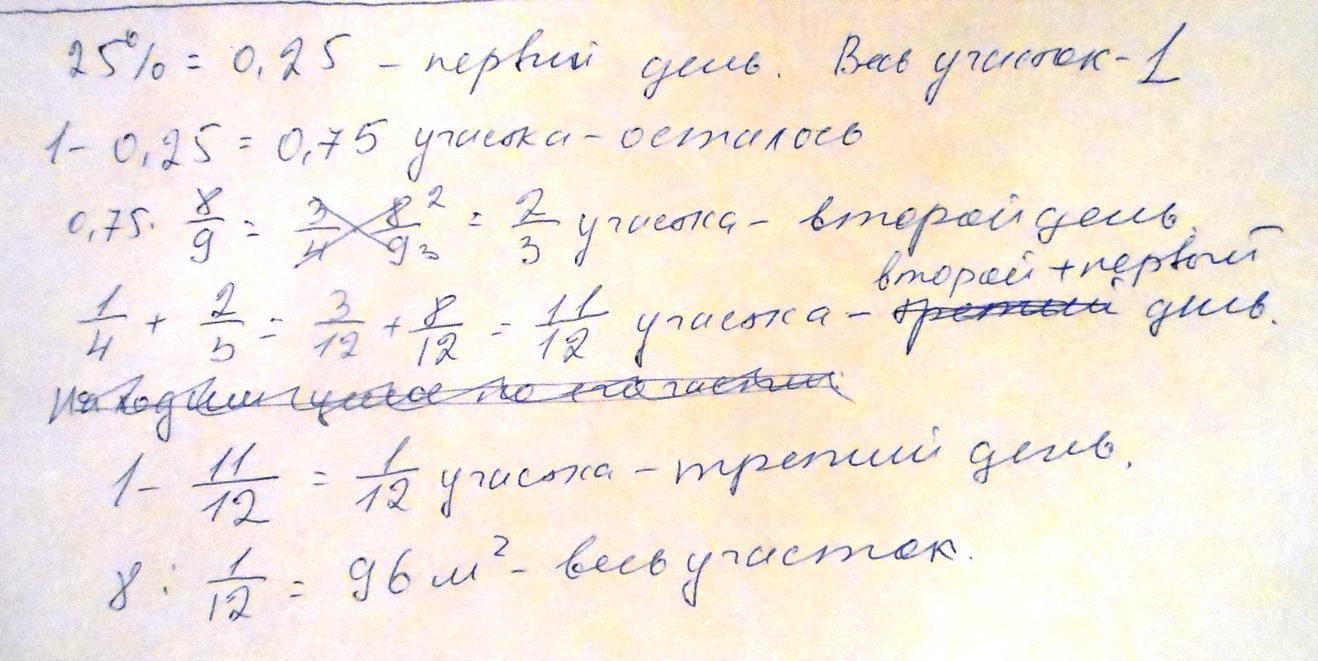 25% = 0,25 - первый день. Весь участок - 1
1 - 0,25 = 0,75 участка - осталось
0,75 · 8/9 = 3/4 · 8/9 2 3 = 2/3 участка - второй день.
второй + первый
1/4 + 2/3 = 3/12 + 8/12 = 11/12 участка - третий день.
Находим целое по его части
1 - 11/12 = 1/12 участка - третий день.
8 : 1/12 = 96 м² - весь участок.